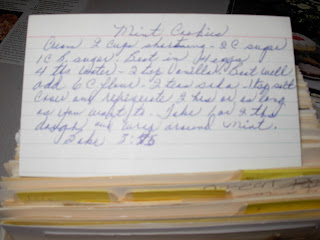 Mint Cookies
Cream 2 cups shortening - 2 C sugar
1 C B. sugar. Beat in 4 eggs
4 tbs Water - 2 tsp Vanilla. Beat well
add 6 C flour - 2 teas soda - 1 tsp salt
Cover and refrigerate 2 hrs or as long
as you want to. Take
dough and wrap around mint.
Bake